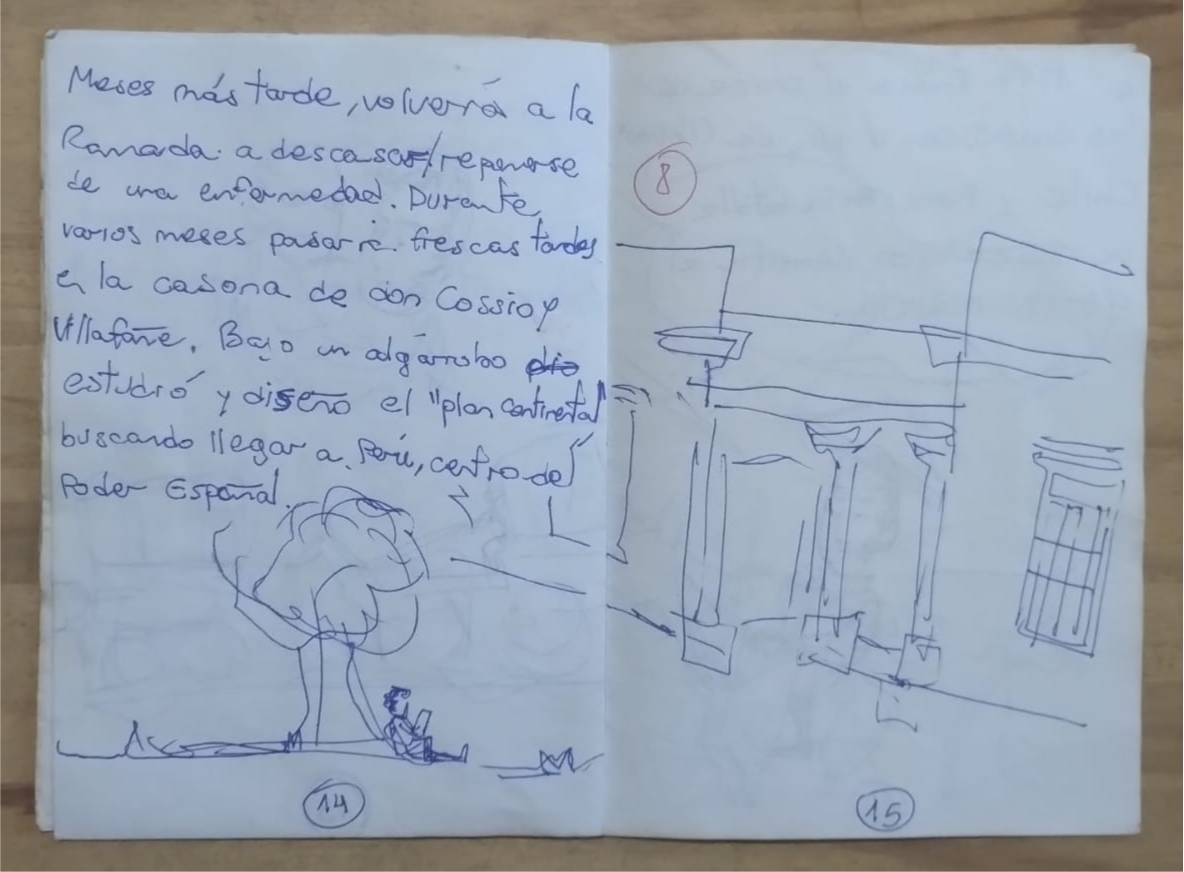 Meses más tarde, volverá a la
Ramada. a descasar/reponerse
de una enfermedad. Durante
varios meses pasará frescas tardes
en la casona de don Cossio y
Villafañe. Bajo un algarrobo dio
estudió y diseño el "plan continental"
buscando llegar a Perú, centro del
Poder Español.
14
8
15